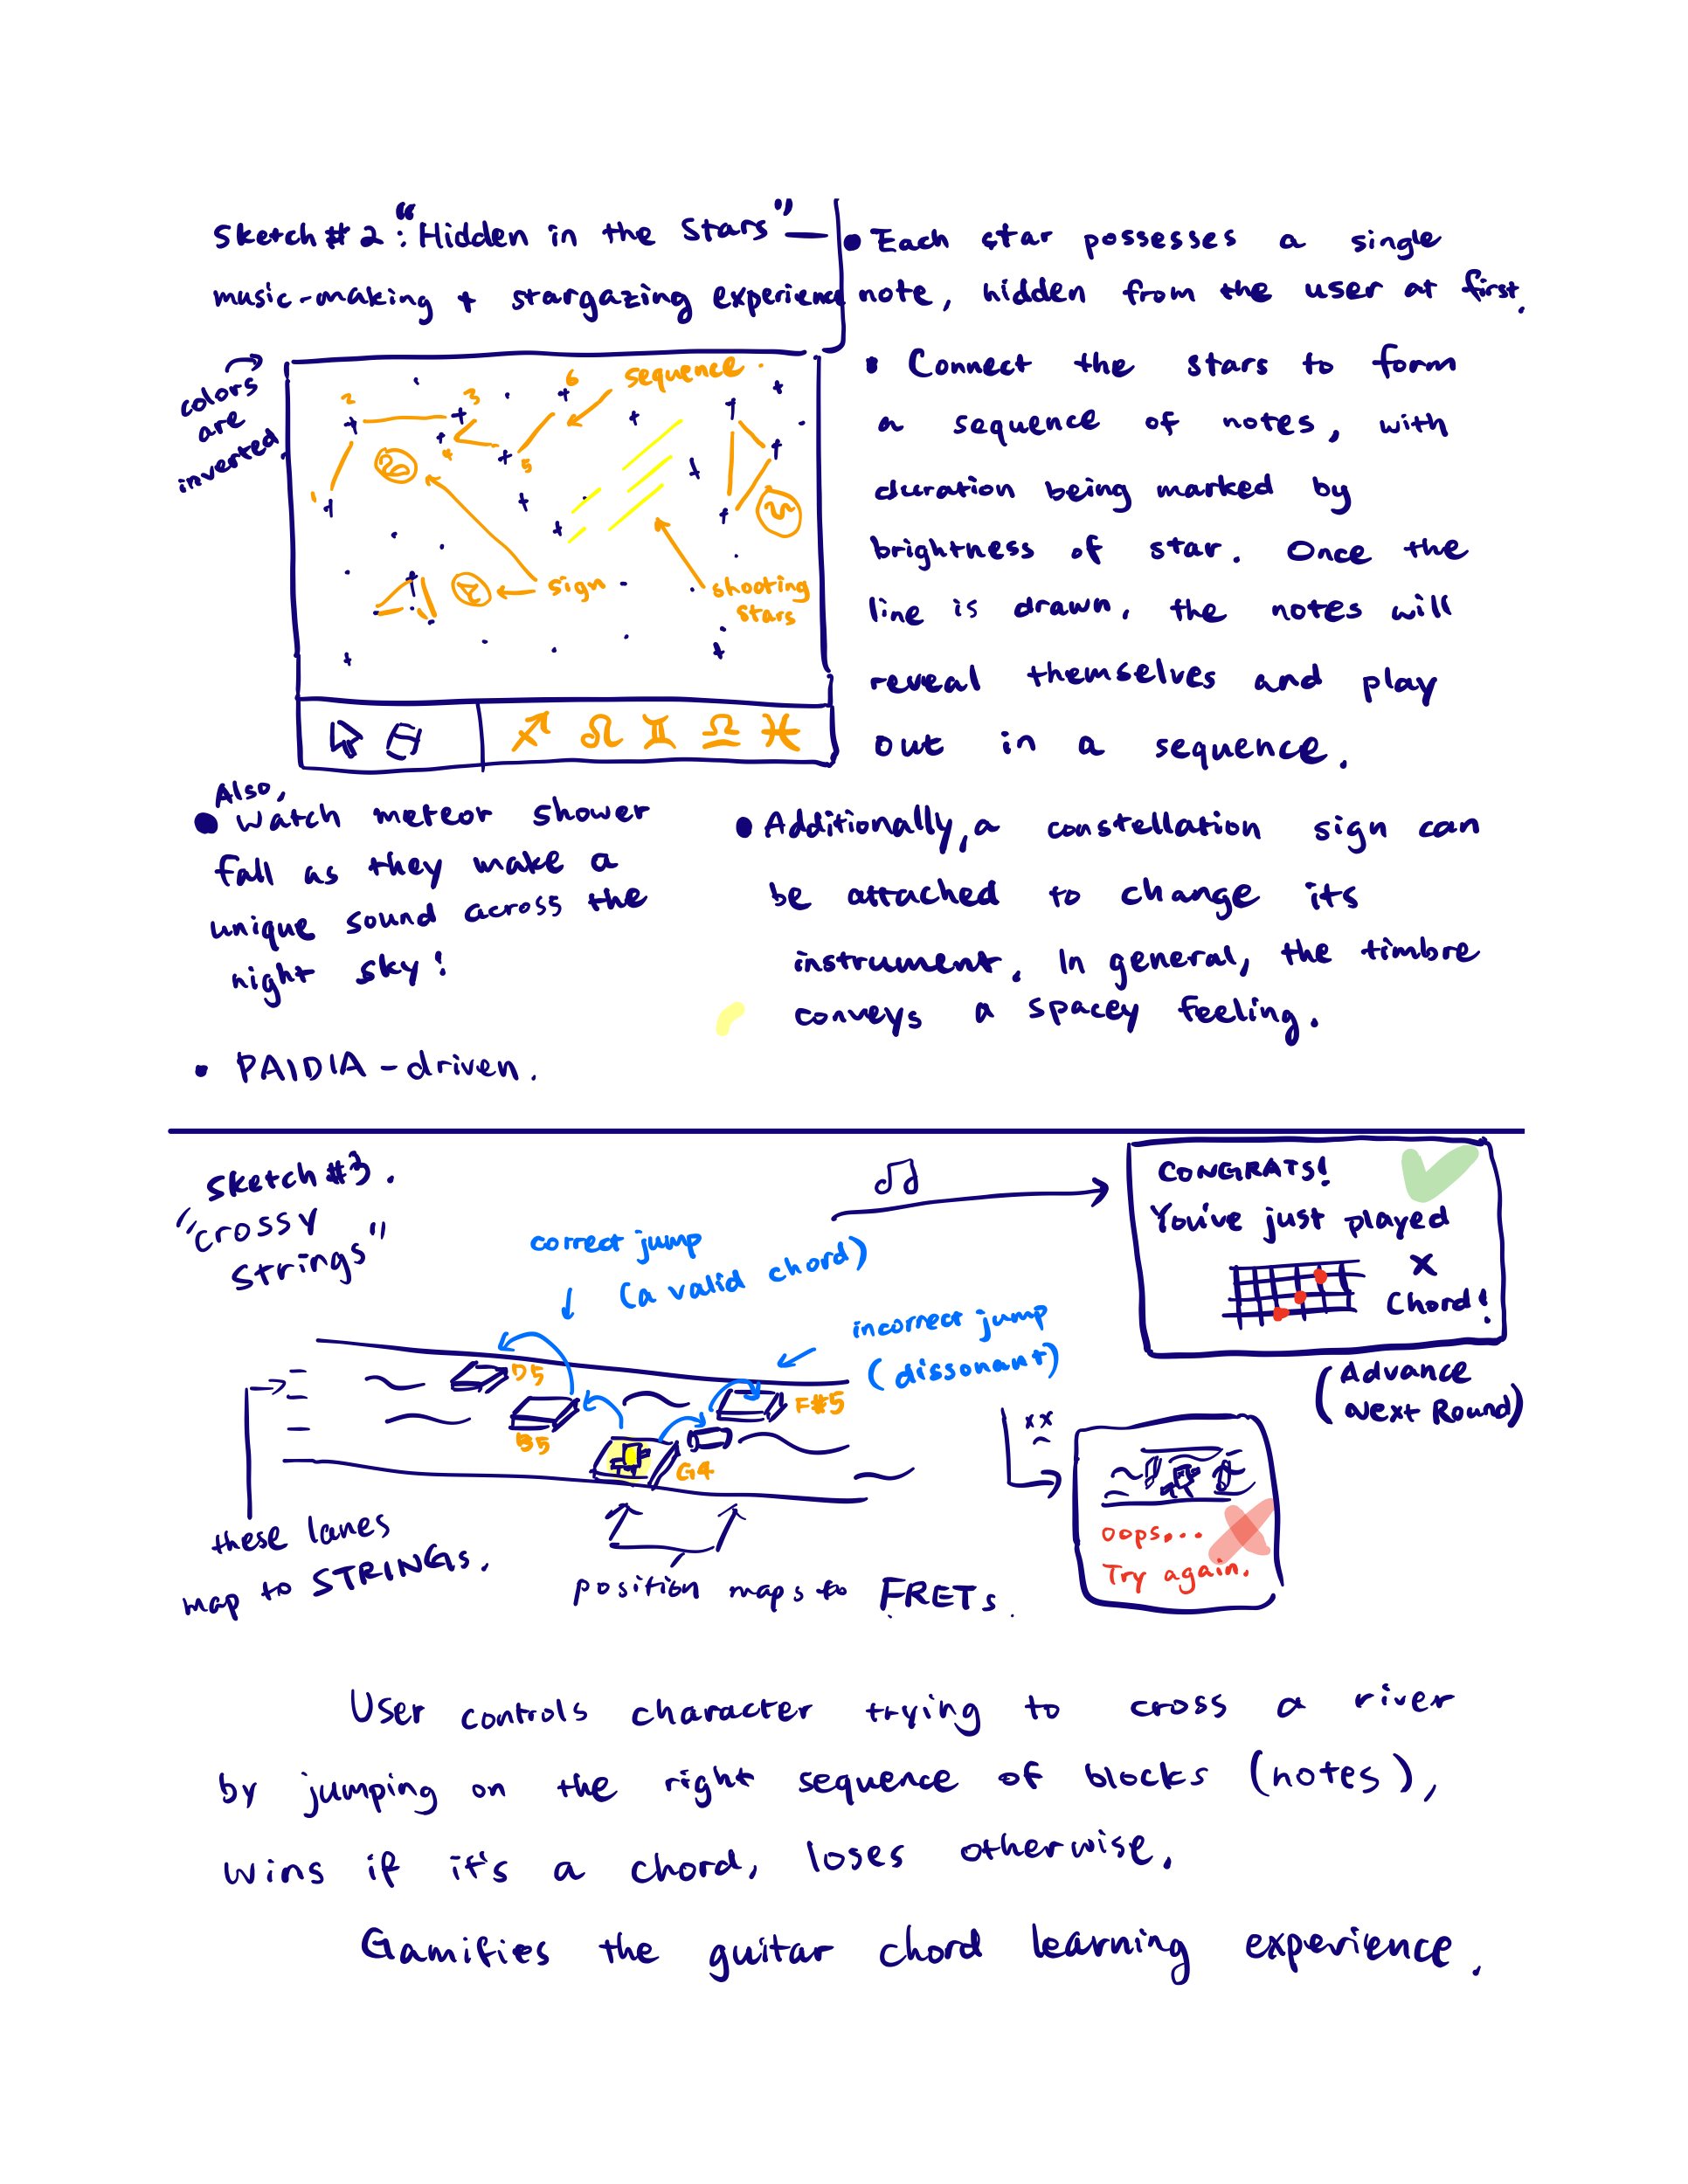 Sketch #2: "Hidden in the Stars" —
music-making + stargazing experience
colors
are
inverted.
1
2
3
4
5
6
sequence.
sign
shooting
stars
♐ ♌ ♊ ♎ ♓
• Each star possesses a single
note, hidden from the user at first.
• Connect the stars to form
a sequence of notes, with
duration being marked by
brightness of star. Once the
line is drawn, the notes will
reveal themselves and play
out in a sequence.
Also,
• Watch meteor shower
fall as they make a
unique sound across the
night sky!
• PAIDIA-driven.
• Additionally, a constellation sign can
be attached to change its
instrument. In general, the timbre
conveys a spacey feeling.
Sketch #3.
"Crossy
Strings"
correct jump
(a valid chord)
incorrect jump
(dissonant)
D5
B5
G4
F#5
these lanes
map to STRINGs.
position maps to FRETs.
CONGRATS!
You've just played
X
Chord!
(Advance
Next Round)
xx
oops...
Try again.
User controls character trying to cross a river
by jumping on the right sequence of blocks (notes),
wins if it's a chord, loses otherwise.
Gamifies the guitar chord learning experience.